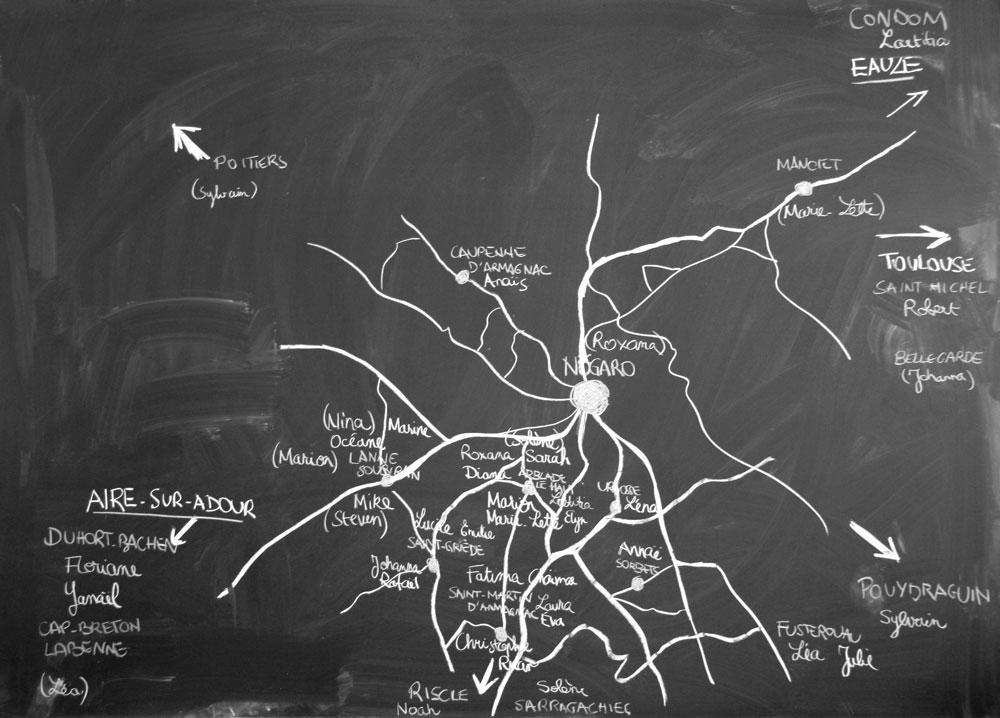 CONDOM
Laetitia
EAUZE
POITIERS
(Sylvain)
MANCIET
(Marie-Lette)
CAUPENNE
D'ARMAGNAC
Anaïs
TOULOUSE
SAINT MICHEL
Robert
BELLEGARDE
(Johanna)
(Roxana)
NOGARO
(Nina)
Marine
Océane
(Marion)
LANNE
SOUBIRAN
Mike
(Steven)
(Solène)
Roxana Sarah
Diana
ARBLADE
LE HAUT
Marion
Laetitia
Marie-Lette Elyn
URGOSSE
Léna
AIRE-SUR-ADOUR
DUHORT-BACHEN
Floriane
CAP-BRETON
LABENNE
(Léa)
Lucile Emilie
SAINT-GRIÈDE
Johanna
Rafael
Fatima Chaima
SAINT-MARTIN
D'ARMAGNAC
Laura
Eva
Christophe
SORBETS
POUYDRAGUIN
Sylvain
FUSTEROUAU
Léa Julie
RISCLE
Noah
Solène
SARRAGACHIES